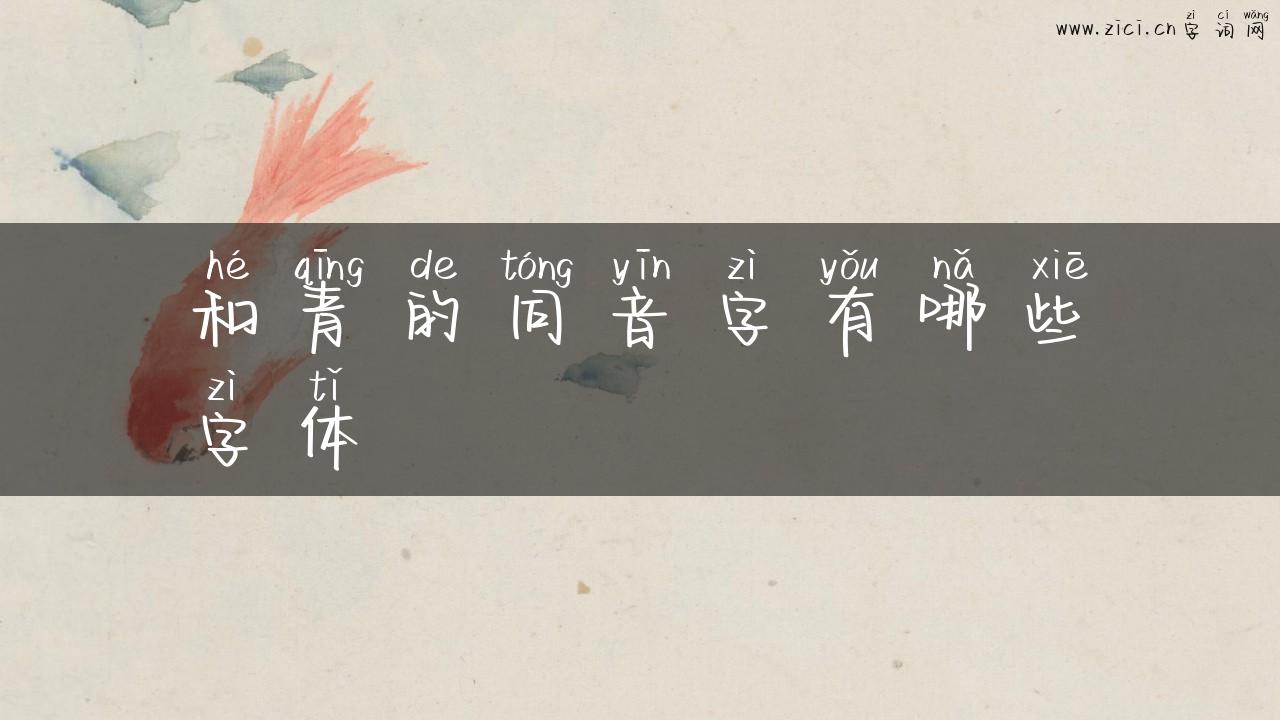 zì cí wǎng
www.zici.cn 字词网
hé qīng de tóng yīn zì yǒu nǎ xiē
和青的同音字有哪些
zì tǐ
字体